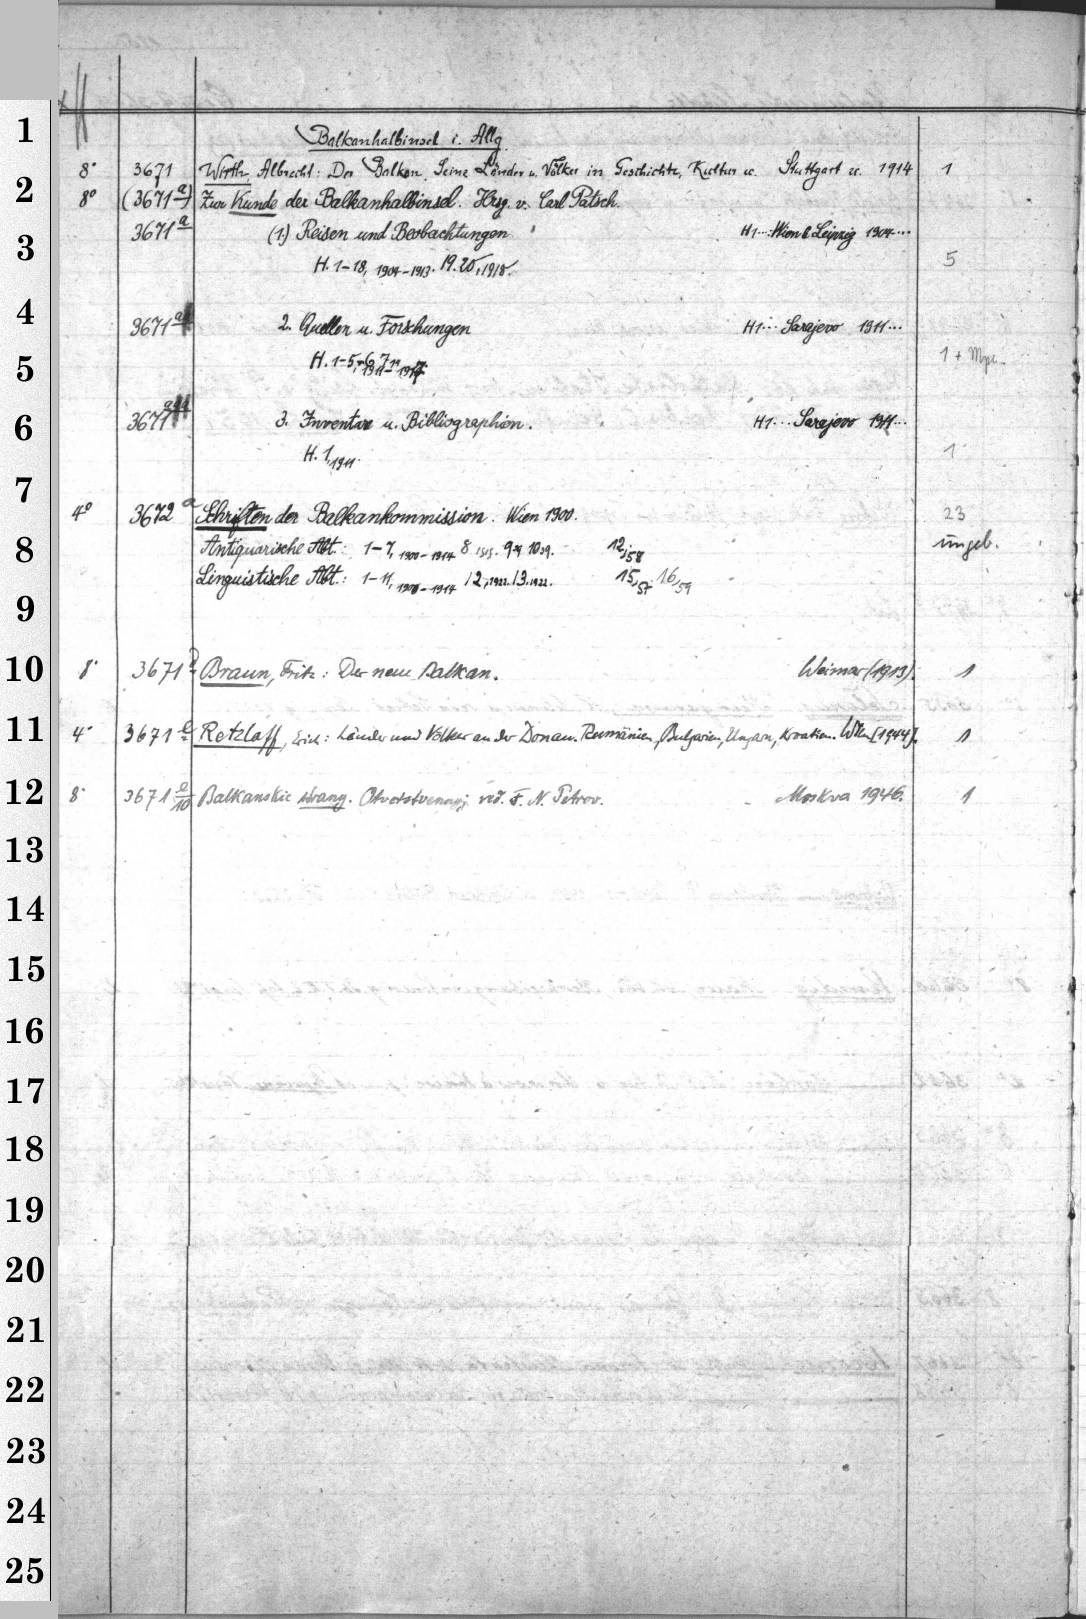 1
Balkanhalbinsel i. Allg.
8° 3671 Wirth, Albrecht: Der Balkan. Seine Länder u. Völker in Geschichte, Kultur u. Stuttgart u. 1914 1
2
8° (3671 a) Zur Kunde der Balkanhalbinsel. Hrsg. v. Carl Patsch.
3671 a (1.) Reisen und Beobachtungen H1... Wien & Leipzig 1904...
3
H. 1-18, 1904-1913. 19.20, 1918. 5
4
3671 2. Quellen u. Forschungen H1... Sarajevo 1911...
5
H. 1-5, 1 +
6
3671 3. Inventare u. Bibliographien. H1... Sarajevo 1911...
H. 1, 1911. 1
7
4° 3672 a Schriften der Balkankommission. Wien 1900. 23
8
Antiquarische Abt.: 1-7, 1900-1914 8 9 10 12,58 ungeb.
Linguistische Abt.: 1-11, 1900-1914 12, 1922. 13. 1922. 15,57 16,59
9
10
8° 3671 Braun, Fritz: Der neue Balkan. Weimar (1913). 1
11
4° 3671 Retzlaff, Erich: Länder und Völker an der Donau. Rumänien, Bulgarien, Ungarn, Kroatien. Wien [1944]. 1
12
8° 3671 Balkanskie strany. Otvetstvennyj red. F. N. Petrov. Moskva 1946. 1
13
14
15
16
17
18
19
20
21
22
23
24
25